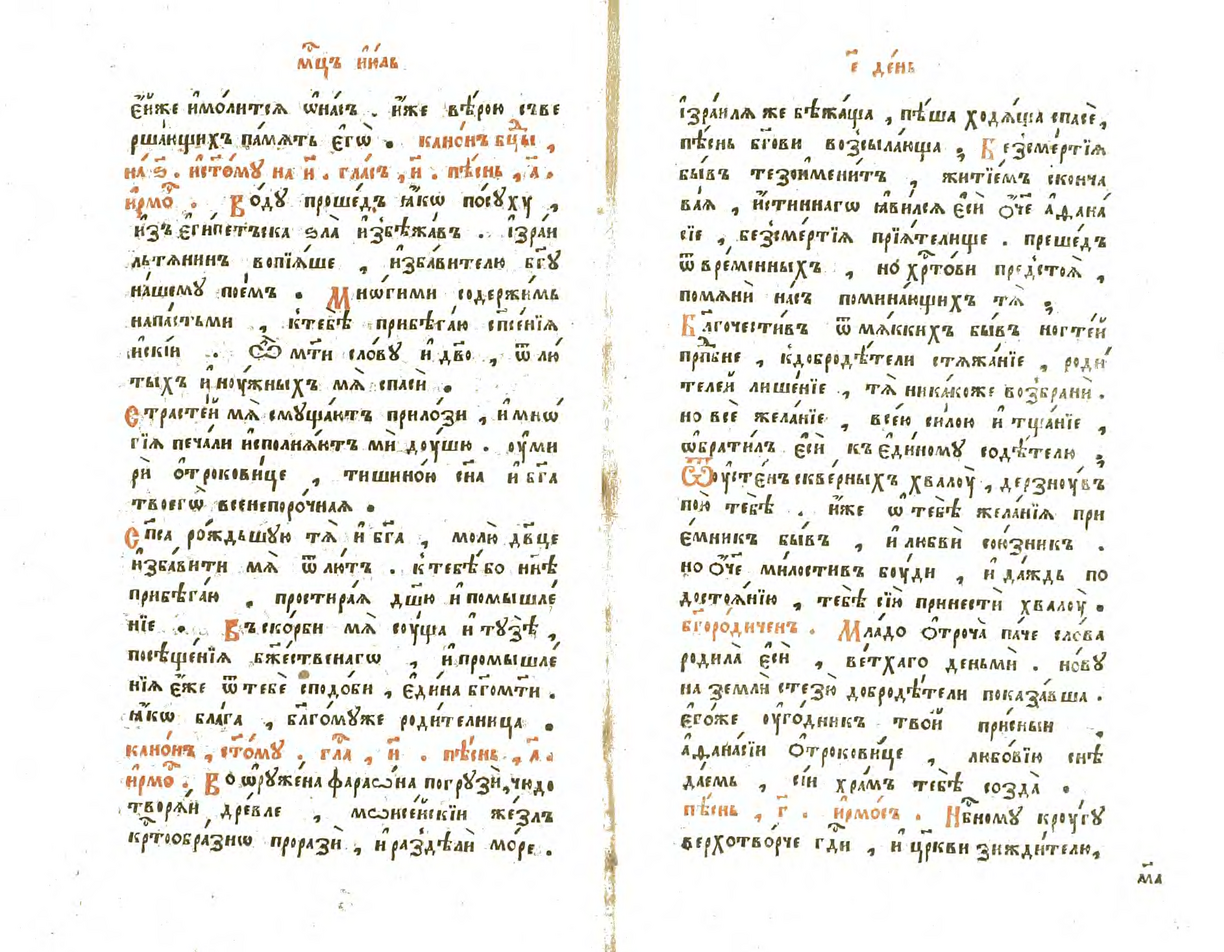 мц҃ъ їюль
е҃ де́нь
є҆́йже и҆мо́литсѧ ѡ҆на́съ . и҆́же вѣ́рою съве
рша́ющихъ па́мѧть є҆гѡ̀ . кано́нъ бцⷣы ,
на ѕ҃ . и҆ст҃о́му на и҃ . гла́съ , и҃ . пѣ́снь , а҃ .
і҆рмо́с . Во́ду проше́дъ ꙗ҆́кѡ по́суху ,
и҆зъ є҆гѵ́петъска ѕла̀ и҆збѣжа́въ . і҆зраи
льтѧ́нинъ вопїѧ́ше , и҆зба́вителю бг҃у
на́шему пое́мъ . Мно́гими содержи́мь
напа́стьми , к̾тебѣ̀ прибѣга́ю сп҃се́нїѧ
и҆скі́й . Ѽ мт҃и сло́ву и҆ дв҃о , ѿ лю́
тыхъ и҆ ноу́жныхъ мѧ̀ спасѝ .
Страсте́й мѧ̀ смуща́ютъ прило́зи , и҆ мнѡ́
гїѧ печа́ли и҆сполнѧ́ютъ мѝ доу́шю . оу҆ми
рѝ ѻ҆трокови́це , тишино́ю сн҃а и҆ бг҃а
твоегѡ̀ всенепоро́чнаѧ .
Сп҃са ро́ждьшую тѧ̀ и҆ бг҃а , молю̀ дв҃це
и҆зба́вити мѧ̀ ѿ лю́тъ . к̾тебѣ́ бо нн҃ѣ
прибѣга́ю , простира́ѧ дш҃ю и҆ помышле́
нїе . Въ ско́рби мѧ̀ соу́ща и҆ ту́зѣ ,
посѣще́нїѧ бж҃е́ственагѡ , и҆ промышле́
нїѧ є҆́же ѿ тебѐ сподо́би , є҆ди́на бг҃ом҃ти .
ꙗ҆́кѡ бла́га , бл҃го́муже роди́телница .
кано́нъ , ст҃о́му . гла́ , и҃ . пѣ́снь , а҃ .
і҆рмо́с . Воѡ҆руже́на фараѡ́на погрузѝ , чюдо
творѧ́й дре́вле , моѷсе́йскїи же́злъ
крⷭ҇тоѡбра́знѡ поразѝ , и҆ раздѣлѝ мо́ре .
і҆зра́илѧ же бѣжа́ща , пѣ́ша ходѧ́ща спасѐ ,
пѣ́снь бг҃ови возсыла́юща . Безсме́ртїѧ
бы́въ тезоимени́тъ , житїе́мъ сконча
ва́ѧ , и҆́стиннагѡ ꙗ҆ви́лсѧ є҆сѝ ѻ҆́ч҃е а҆фана́
сїе , безсме́ртїѧ прїѧ́телище . преше́дъ
ѿ вре́менныхъ , но́ хрⷭ҇то́ви предстоѧ̀ ,
помѧнѝ на́съ помина́ющихъ тѧ̀ .
Благочести́въ ѿ мѧ́ккихъ бы́въ ногте́й
прпⷣбне , к̾добродѣ́тели стѧжа́нїе , роди́
телей лише́нїе , тѧ̀ ника́коже возбранѝ .
но всѐ жела́нїе , все́ю си́лою и҆ тща́нїе ,
ѡ҆брати́лъ є҆сѝ къ є҆ди́ному содѣ́телю .
Ѿ оу҆сте́нъ скве́рныхъ хвалоу̀ , дерзноу́въ
пою̀ тебѣ̀ . и҆́же ѡ҆ тебѣ̀ жела́нїѧ прї
е́мникъ бы́въ , и҆ любвѝ сою́зникъ .
но ѻ҆́ч҃е ми́лостивъ боу́ди , и҆ да́ждь по
достоѧ́нїю , тебѣ̀ сїю̀ принестѝ хвалоу̀ .
бг҃оро́диченъ . Мла́до ѻ҆троча̀ па́че сло́ва
родила̀ є҆сѝ , ве́тхаго деньмѝ . но́ву
на землѝ стезю̀ добродѣ́тели показа́вша .
є҆го́же оу҆го́дникъ тво́й при́сныи ,
а҆фана́сїи ѻ҆трокови́це , любо́вїю снѣ
да́емь , сі́и хра́мъ тебѣ̀ созда̀ .
пѣ́снь , г҃ . і҆рмо́съ . Нбⷭ҇ному кроу́гу
верхотво́рче гдⷭ҇и , и҆ цр҃кви зижди́телю ,
м҃а